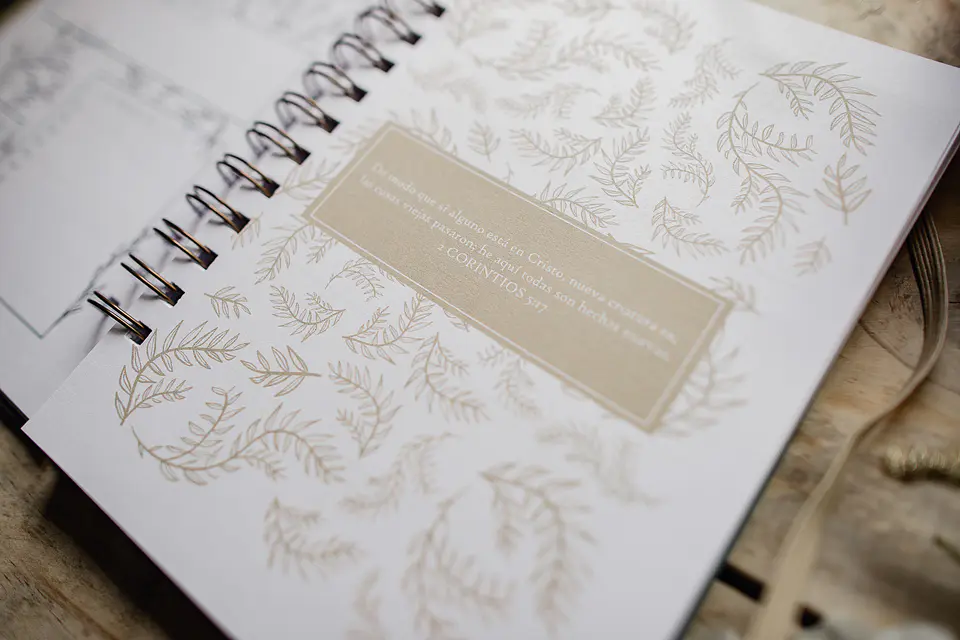 De modo que si alguno está en Cristo, nueva criatura es;
las cosas viejas pasaron; he aquí todas son hechas nuevas.
2 CORINTIOS 5:17